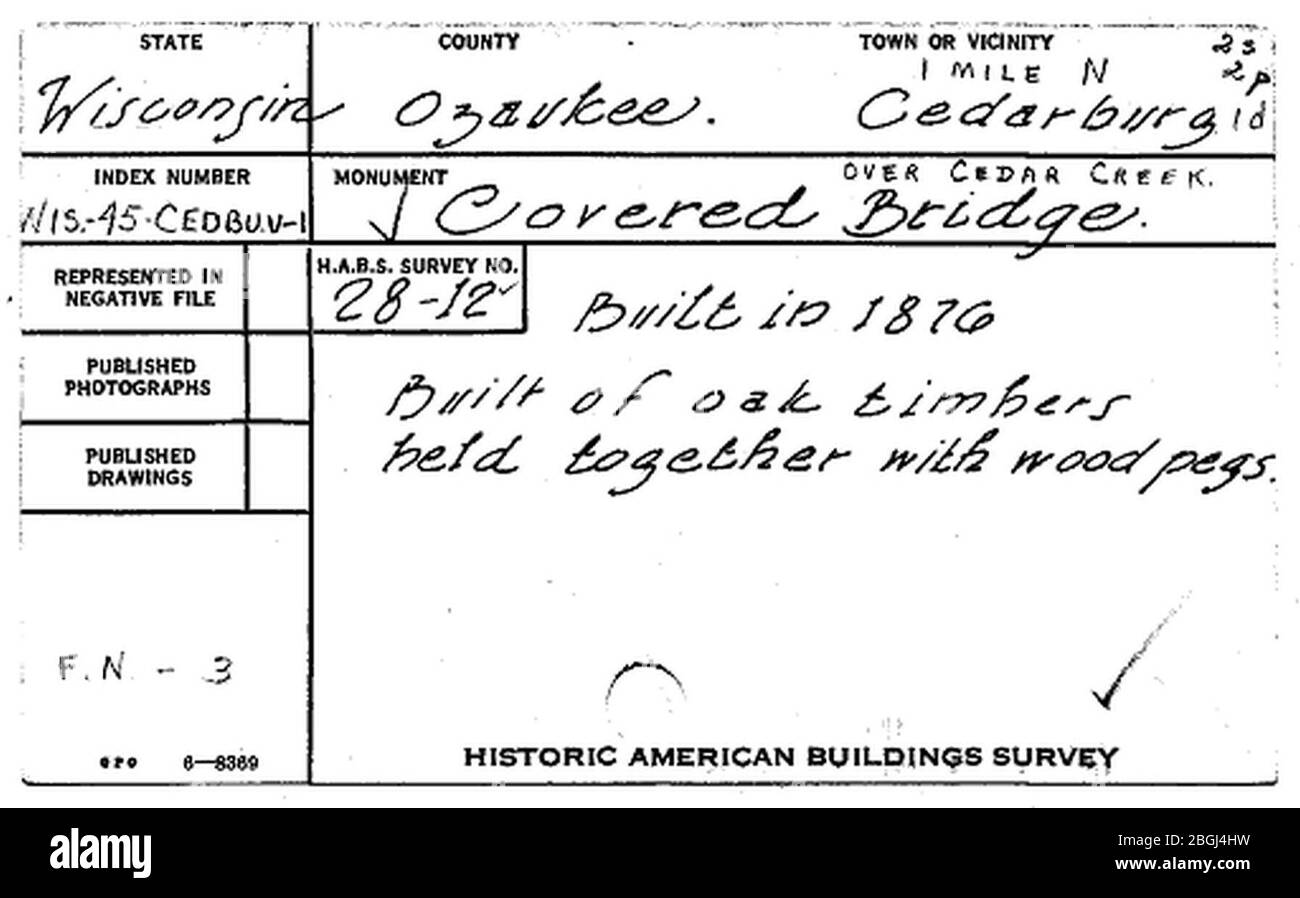 STATE COUNTY TOWN OR VICINITY 2s
1 MILE N 2p
Wisconsin Ozaukee. Cedarburg 1d
INDEX NUMBER MONUMENT OVER CEDAR CREEK.
WIS.-45-CEDBU.V-1 Covered Bridge.
REPRESENTED IN
NEGATIVE FILE
H.A.B.S. SURVEY NO.
28-12
Built in 1876
PUBLISHED
PHOTOGRAPHS
Built of oak timbers
held together with wood pegs.
PUBLISHED
DRAWINGS
F.N. - 3
GPO 6—8369
HISTORIC AMERICAN BUILDINGS SURVEY
alamy
Image ID: 2BGJ4HW
www.alamy.com